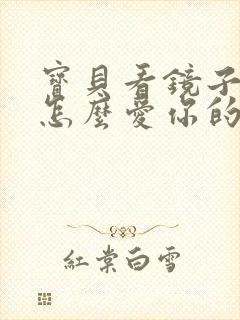 寶貝看鏡子
怎麼愛你的
紅棠白雪